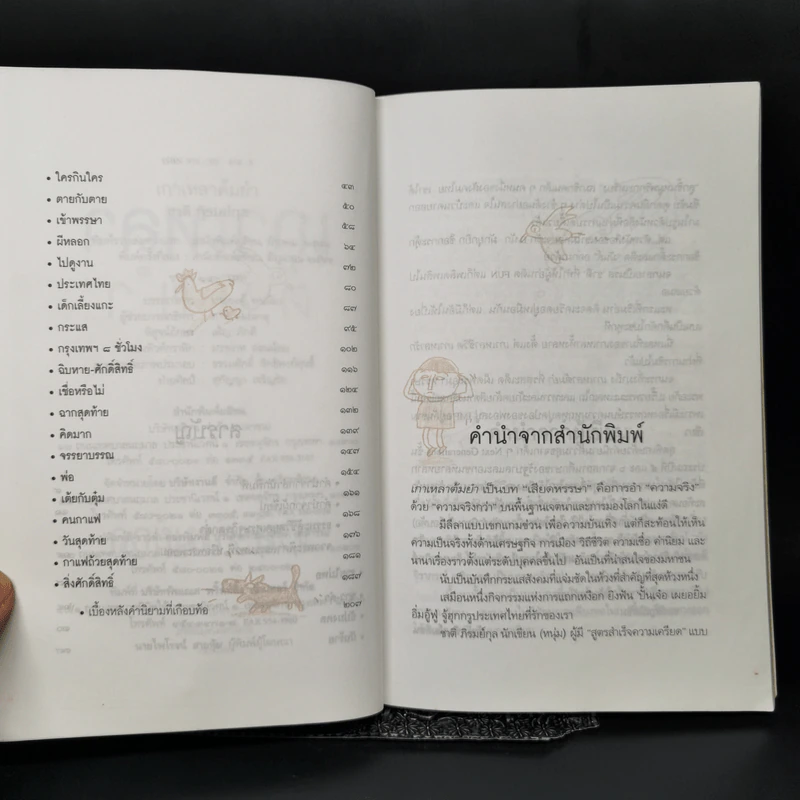 • ใครกินใคร ๔๓
• ตายกับตาย ๕๐
• เข้าพรรษา ๕๘
• ผีหลอก ๖๔
• ไปดูงาน ๗๒
• ประเทศไทย ๘๐
• เด็กเลี้ยงแกะ ๘๗
• กระแส ๙๕
• กรุงเทพฯ ๘ ชั่วโมง ๑๐๒
• ฉิบหาย-ศักดิ์สิทธิ์ ๑๑๖
• เชื่อหรือไม่ ๑๒๔
• ฉากสุดท้าย ๑๓๒
• คิดมาก ๑๓๙
• จรรยาบรรณ ๑๔๗
• พ่อ ๑๕๔
• เตี้ยกับตุ้ม ๑๖๑
• คนกาแฟ ๑๖๘
• วันสุดท้าย ๑๗๖
• กาแฟถ้วยสุดท้าย ๑๘๑
• สิ่งศักดิ์สิทธิ์ ๑๘๙
• เบื้องหลังคำนิยามที่เกือบท้อ ๒๐๗
คำนำจากสำนักพิมพ์
เกาเหลาต้มยำ เป็นบท "เสียดหรรษา" คือการอำ "ความจริง"
ด้วย "ความจริงกว่า" บนพื้นฐานเจตนาและการมองโลกในแง่ดี
มีลีลาแบบเชกแกมช่วน เพื่อความบันเทิง แต่ก็สะท้อนให้เห็น
ความเป็นจริงทั้งด้านเศรษฐกิจ การเมือง วิถีชีวิต ความเชื่อ ค่านิยม และ
นานาเรื่องราวตั้งแต่ระดับบุคคลขึ้นไป อันเป็นที่น่าสนใจของมหาชน
นับเป็นบันทึกกระแสสังคมที่แจ่มชัดในห้วงที่สำคัญที่สุดห้วงหนึ่ง
เสมือนหนึ่งกิจกรรมแห่งการแยกเหงือก ยิงฟัน ปั้นเจ๋อ เผยอยิ้ม
อิ่มอู้ฟู่ จู้ฮุกกรูประเทศไทยที่รักของเรา
ชาติ ภิรมย์กุล นักเขียน (หนุ่ม) ผู้มี "สูตรสำเร็จความเครียด" แบบ